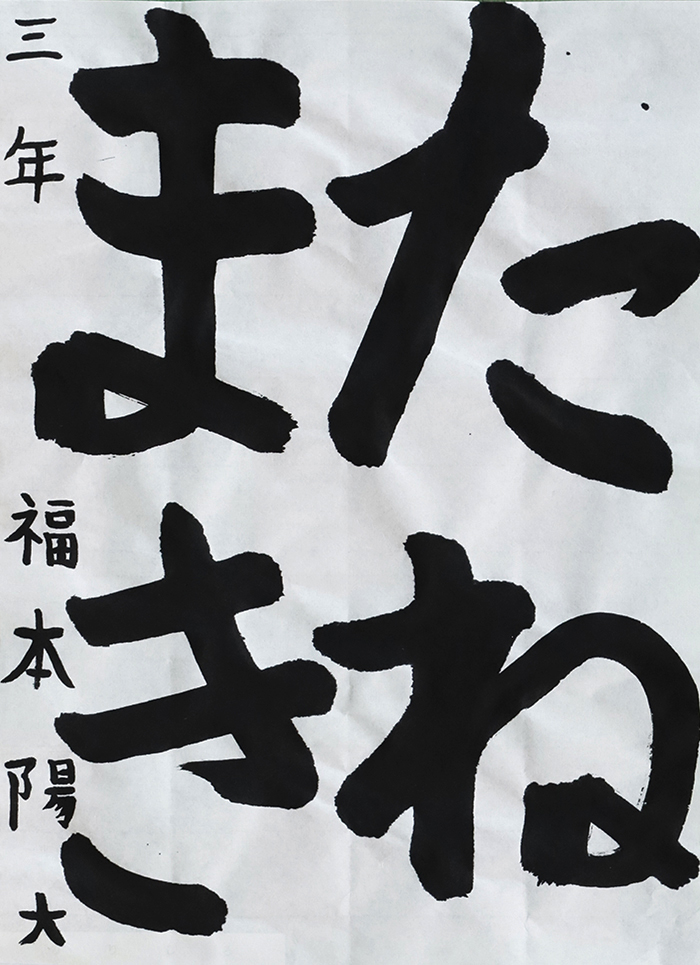 たね
まき
三年 福本陽大